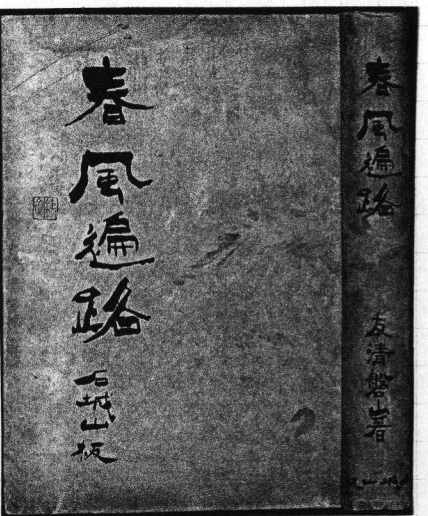 春風遍路
石城山板
春風遍路
友清磐山著